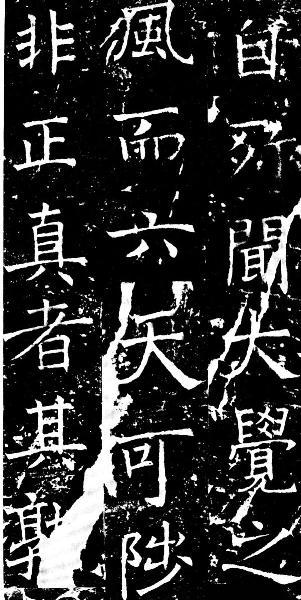 自聞大覺之
風而六天可陟
非正真者其孰